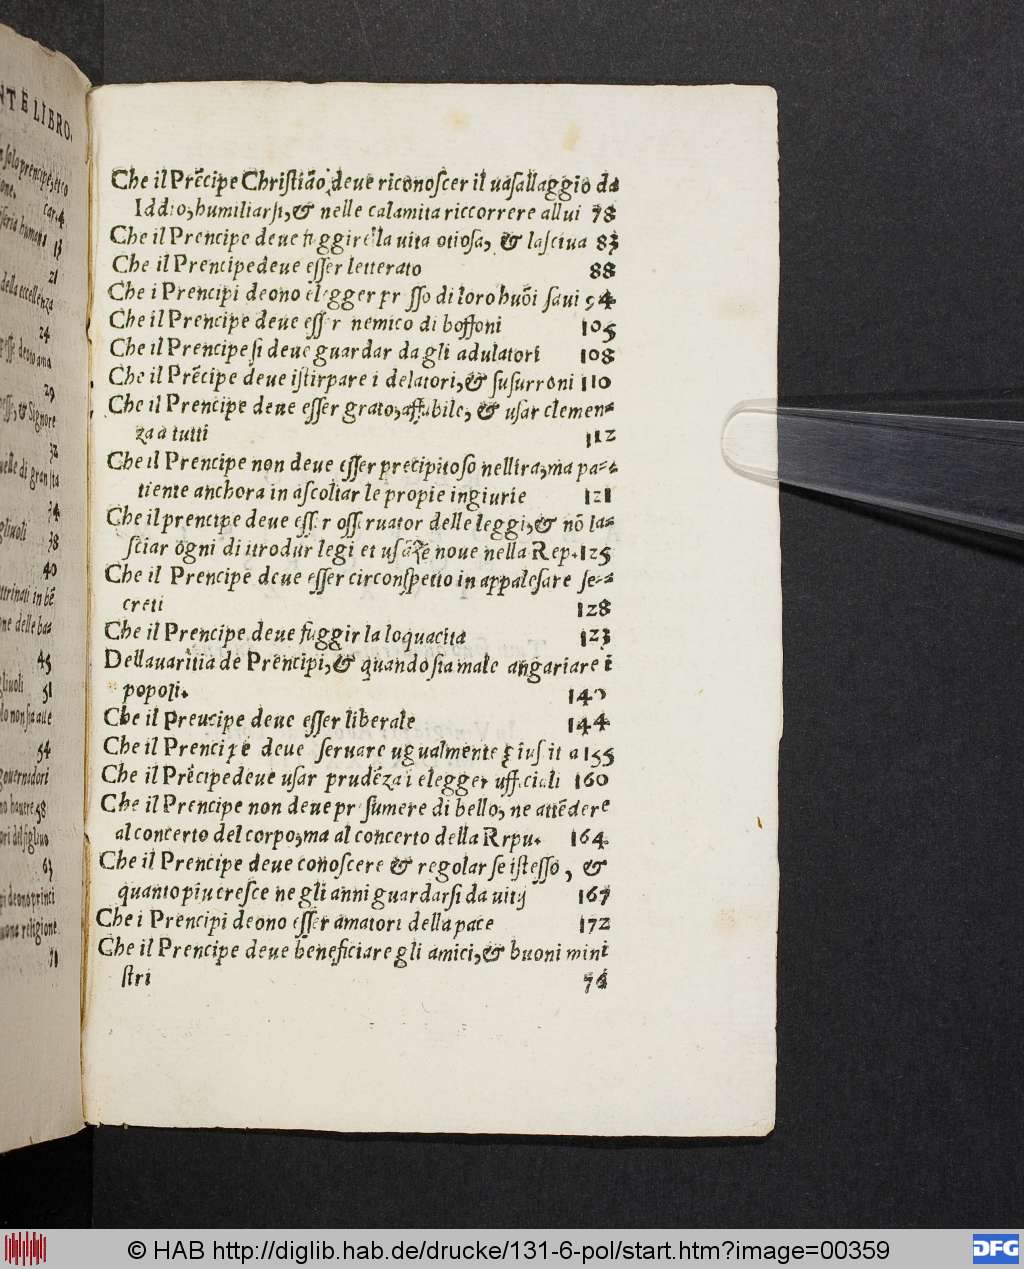 NTE LIBRO.
solo prencipe, et co
car. 4
13
21
della eccellenza
24
29
, & Signore
32
uelle di gran sta
34
gliuoli 38
40
ttrinati in bẽ
one delle ba=
45
gliuoli 51
54
gouernadori
no hauere 58
ori del figliuo
63
pi deono princi
buona religione
71
Che il Prẽcipe Christião deue riconoscer il uasallaggio da
Iddio, humiliarsi, & nelle calamita riccorrere allui 78
Che il Prencipe deue fuggire la uita otiosa, & lasciua 83
Che il Prencipe deue esser letterato 88
Che i Prencipi deono elegger pr sso di loro huõi saui 94
Che il Prencipe deue esser nemico di boffoni 105
Che il Prencipe si deue guardar da gli adulatori 108
Che il Prẽcipe deue istirpare i delatori, & susurroni 110
Che il Prencipe deue esser grato, affabile, & usar clemen=
za a tutti 112
Che il Prencipe non deue esser precipitoso nell ira, ma pa=
tiente anchora in ascoltar le propie ingiurie 121
Che il prencipe deue esser osseruator delle leggi, & nõ la=
sciar ogni di itrodur legi et usãze noue nella Rep. 125
Che il Prencipe deue esser circonspetto in appalesare se=
creti 128
Che il Prencipe deue fuggir la loquacita 123
Dell auaritia de Prencipi, & quando sia male angariare i
popoli. 140
Che il Preucipe deue esser liberale 144
Che il Prencipe deue seruare ugualmente giustitia 155
Che il Prẽcipe deue usar prudẽza i elegger ufficiali 160
Che il Prencipe non deue pr sumere di bello, ne attẽdere
al concerto del corpo, ma al concerto della Rrpu. 164
Che il Prencipe deue conoscere & regolar se istesso, &
quanto piu cresce ne gli anni guardarsi da uitij 167
Che i Prencipi deono esser amatori della pace 172
Che il Prencipe deue beneficiare gli amici, & buoni mini
stri 74
© HAB http://diglib.hab.de/drucke/131-6-pol/start.htm?image=00359
DFG